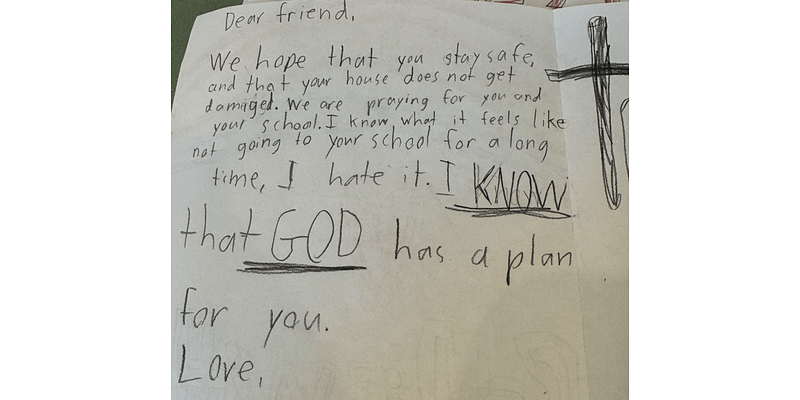 Dear friend,
We hope that you stay safe,
and that your house does not get
damiged. We are praying for you and
your school. I know what it feels like
not going to your school for a long
time, I hate it. I KNOW
that GOD has a plan
for you.
Love,